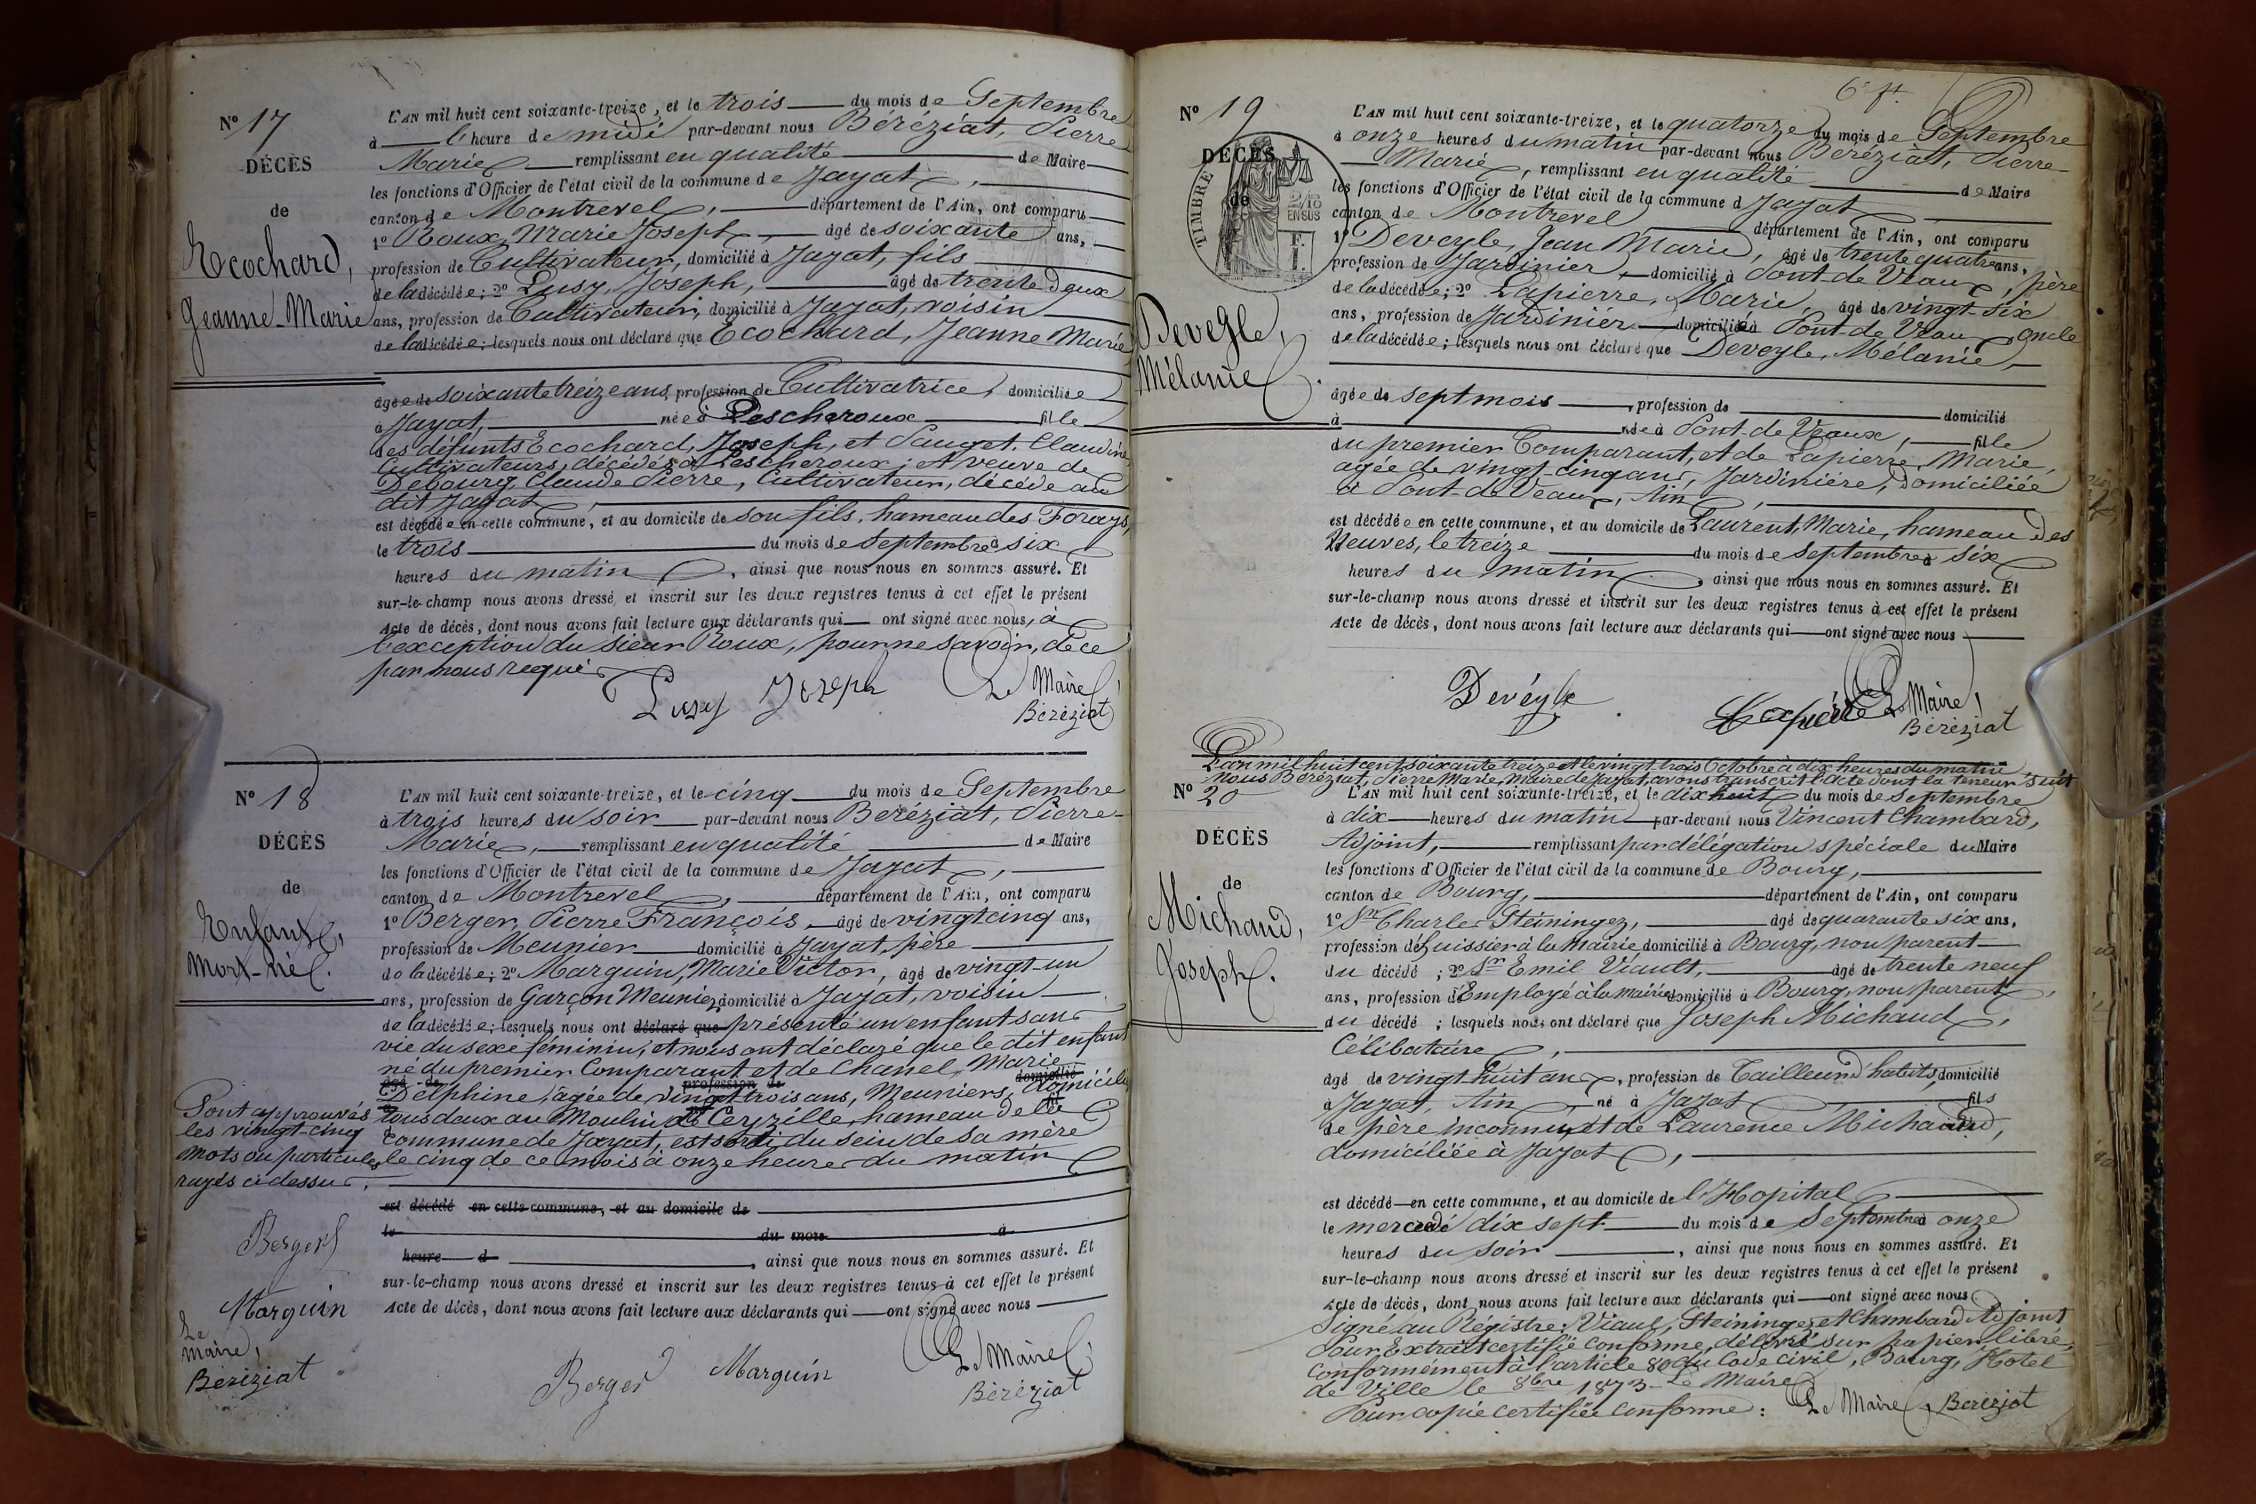 N° 17
DÉCÈS
de
Ecochard,
Jeanne-Marie
L'AN mil huit cent soixante-treize, et le trois du mois de Septembre
à l'heure de midi par-devant nous Béréziat, Pierre
Marie, remplissant en qualité de Maire
les fonctions d'Officier de l'état civil de la commune de Jayat,
canton de Montrevel, département de l'Ain, ont comparu
1° Roux, Marie Joseph, âgé de soixante ans,
profession de Cultivateur, domicilié à Jayat, fils
de la décédée; 2° Lusy, Joseph, âgé de trente deux
ans, profession de Cultivateur, domicilié à Jayat, voisin
de la décédée; lesquels nous ont déclaré que Ecochard, Jeanne Marie
âgée de soixante treize ans, profession de Cultivatrice, domiciliée
à Jayat, née à Lescheroux fille
des défunts Ecochard, Joseph, et Pauget, Claudine
Cultivateurs, décédés à Lescheroux; et veuve de
Debourg, Claude Pierre, Cultivateur, décédé au
dit Jayat,
est décédée en cette commune, et au domicile de son fils, hameau des Forays,
le trois du mois de septembre à six
heures du matin, ainsi que nous nous en sommes assuré. Et
sur-le-champ nous avons dressé et inscrit sur les deux registres tenus à cet effet le présent
Acte de décès, dont nous avons fait lecture aux déclarants qui ont signé avec nous, à
l'exception du sieur Roux, pour ne savoir, de ce
par nous requis
Lusy Joseph Le Maire,
Béréziat
N° 18
DÉCÈS
de
Enfant,
Mort-né.
L'AN mil huit cent soixante-treize, et le cinq du mois de Septembre
à trois heures du soir par-devant nous Béréziat, Pierre-
Marie, remplissant en qualité de Maire
les fonctions d'Officier de l'état civil de la commune de Jayat,
canton de Montrevel, département de l'Ain, ont comparu
1° Berger, Pierre François, âgé de vingt cinq ans,
profession de Meunier domicilié à Jayat, père
de la décédée; 2° Marguin, Marie Victor, âgé de vingt-un
ans, profession de Garçon Meunier, domicilié à Jayat, voisin
de la décédée; lesquels nous ont déclaré que présenté un enfant sans
vie du sexe féminin, et nous ont déclaré que le dit enfant
né du premier Comparant et de Chanel, Marie
âgé de profession de domicilié
Delphine, âgée de vingt trois ans, Meuniers, domiciliés
tous deux au Moulin de Ceyzille, hameau de la
commune de Jayat, est sorti du sein de sa mère
le cinq de ce mois à onze heures du matin
est décédé en cette commune, et au domicile de
le du mois à
heure d , ainsi que nous nous en sommes assuré. Et
sur-le-champ nous avons dressé et inscrit sur les deux registres tenus à cet effet le présent
Acte de décès, dont nous avons fait lecture aux déclarants qui ont signé avec nous
Sont approuvés
les vingt-cinq
mots ou particules
rayés ci dessus.
Berger
Marguin
Le
Maire,
Béréziat
Berger Marguin Le Maire,
Béréziat
6e ft.
N° 19
DÉCÈS
de
TIMBRE
2/10
EN SUS
F.
1.
Deveyle,
Mélanie
L'AN mil huit cent soixante-treize, et le quatorze du mois de Septembre
à onze heures du matin par-devant nous Béréziat, Pierre-
Marie, remplissant en qualité de Maire
les fonctions d'Officier de l'état civil de la commune d Jayat
canton de Montrevel département de l'Ain, ont comparu
1° Deveyle, Jean Marie, âgé de trente quatre ans,
profession de Jardinier, domicilié à Pont-de-Veaux, père
de la décédée; 2° Lapierre, Marie, âgé de vingt-six
ans, profession de Jardinier domicilié à Pont-de-Veaux, oncle
de la décédée; lesquels nous ont déclaré que Deveyle, Mélanie,
âgée de sept mois, profession de domicilié
à née à Pont-de-Veaux, fille
du premier Comparant, et de Lapierre, Marie,
âgée de vingt cinq ans, Jardinière, domiciliée
à Pont-de-Veaux, Ain,
est décédée en cette commune, et au domicile de Laurent, Marie, hameau des
Neuves, le treize du mois de septembre à six
heures du matin, ainsi que nous nous en sommes assuré. Et
sur-le-champ nous avons dressé et inscrit sur les deux registres tenus à cet effet le présent
Acte de décès, dont nous avons fait lecture aux déclarants qui ont signé avec nous
Devéyle Lapierre Le Maire,
Béréziat
L'an mil huit cent soixante treize et le vingt trois Octobre à dix heures du matin
Nous Béréziat, Pierre Marie, Maire de Jayat, avons transcrit l'acte dont la teneur suit
N° 20
DÉCÈS
de
Michaud,
Joseph.
L'AN mil huit cent soixante-treize, et le dix huit du mois de septembre
à dix heures du matin par-devant nous Vincent Chambard,
Adjoint, remplissant par délégation spéciale du Maire
les fonctions d'Officier de l'état civil de la commune de Bourg,
canton de Bourg, département de l'Ain, ont comparu
1° Sr Charles Steiningez, âgé de quarante six ans,
profession d'huissier à la Mairie, domicilié à Bourg, non parent
du décédé; 2° Sr Emil Viault, âgé de trente neuf
ans, profession d'Employé à la Mairie, domicilié à Bourg, non parent
du décédé; lesquels nous ont déclaré que Joseph Michaud,
Célibataire,
âgé de vingt-huit ans, profession de Tailleur d'habits, domicilié
à Jayat, Ain, né à Jayat fils
de père inconnu, et de Laurence Michaud,
domiciliée à Jayat,
est décédé en cette commune, et au domicile de l'Hopital
le mercredi dix sept du mois de Septembre à onze
heures du soir, ainsi que nous nous en sommes assuré. Et
sur-le-champ nous avons dressé et inscrit sur les deux registres tenus à cet effet le présent
Acte de décès, dont nous avons fait lecture aux déclarants qui ont signé avec nous
Signé au Régistre: Viault, Steiningez et Chambard Adjoint
Pour Extrait certifié conforme, délivré sur papier libre,
Conformément à l'article 80 du Code civil, Bourg, Hotel
de Ville le 8bre 1873 Le Maire
Pour copie certifiée conforme: Le Maire, Béréziat